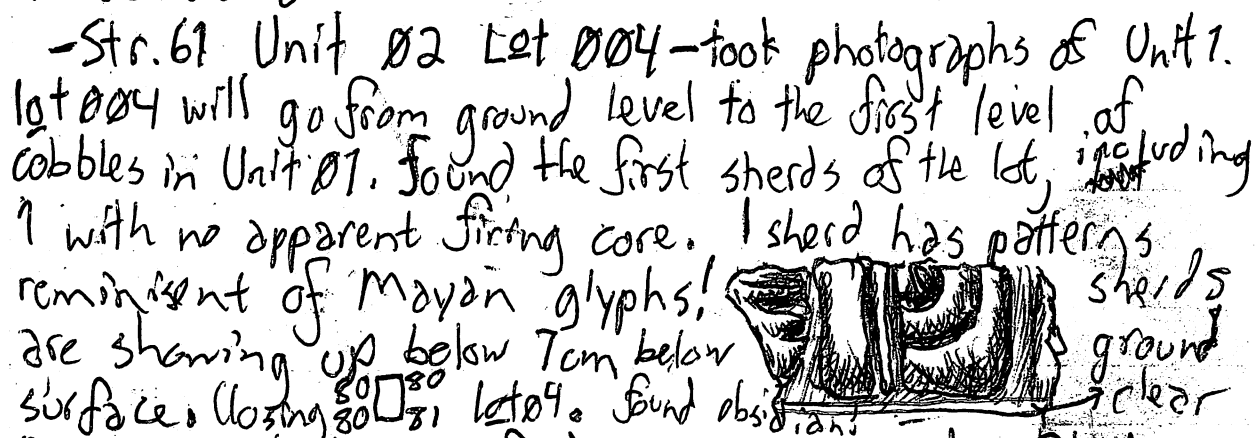 -Str.61 Unit Ø2 Lot ØØ4 - took photographs of Unit 1.
lot ØØ4 will go from ground level to the first level of
cobbles in Unit Ø1. found the first sherds of the lot, including
1 with no apparent firing core. 1 sherd has patterns
reminisent of Mayan glyphs! sherds
are showing up below 7cm below ground
surface. Closing 80 80 80 81 Lot Ø4. found obsidian! 1 clear